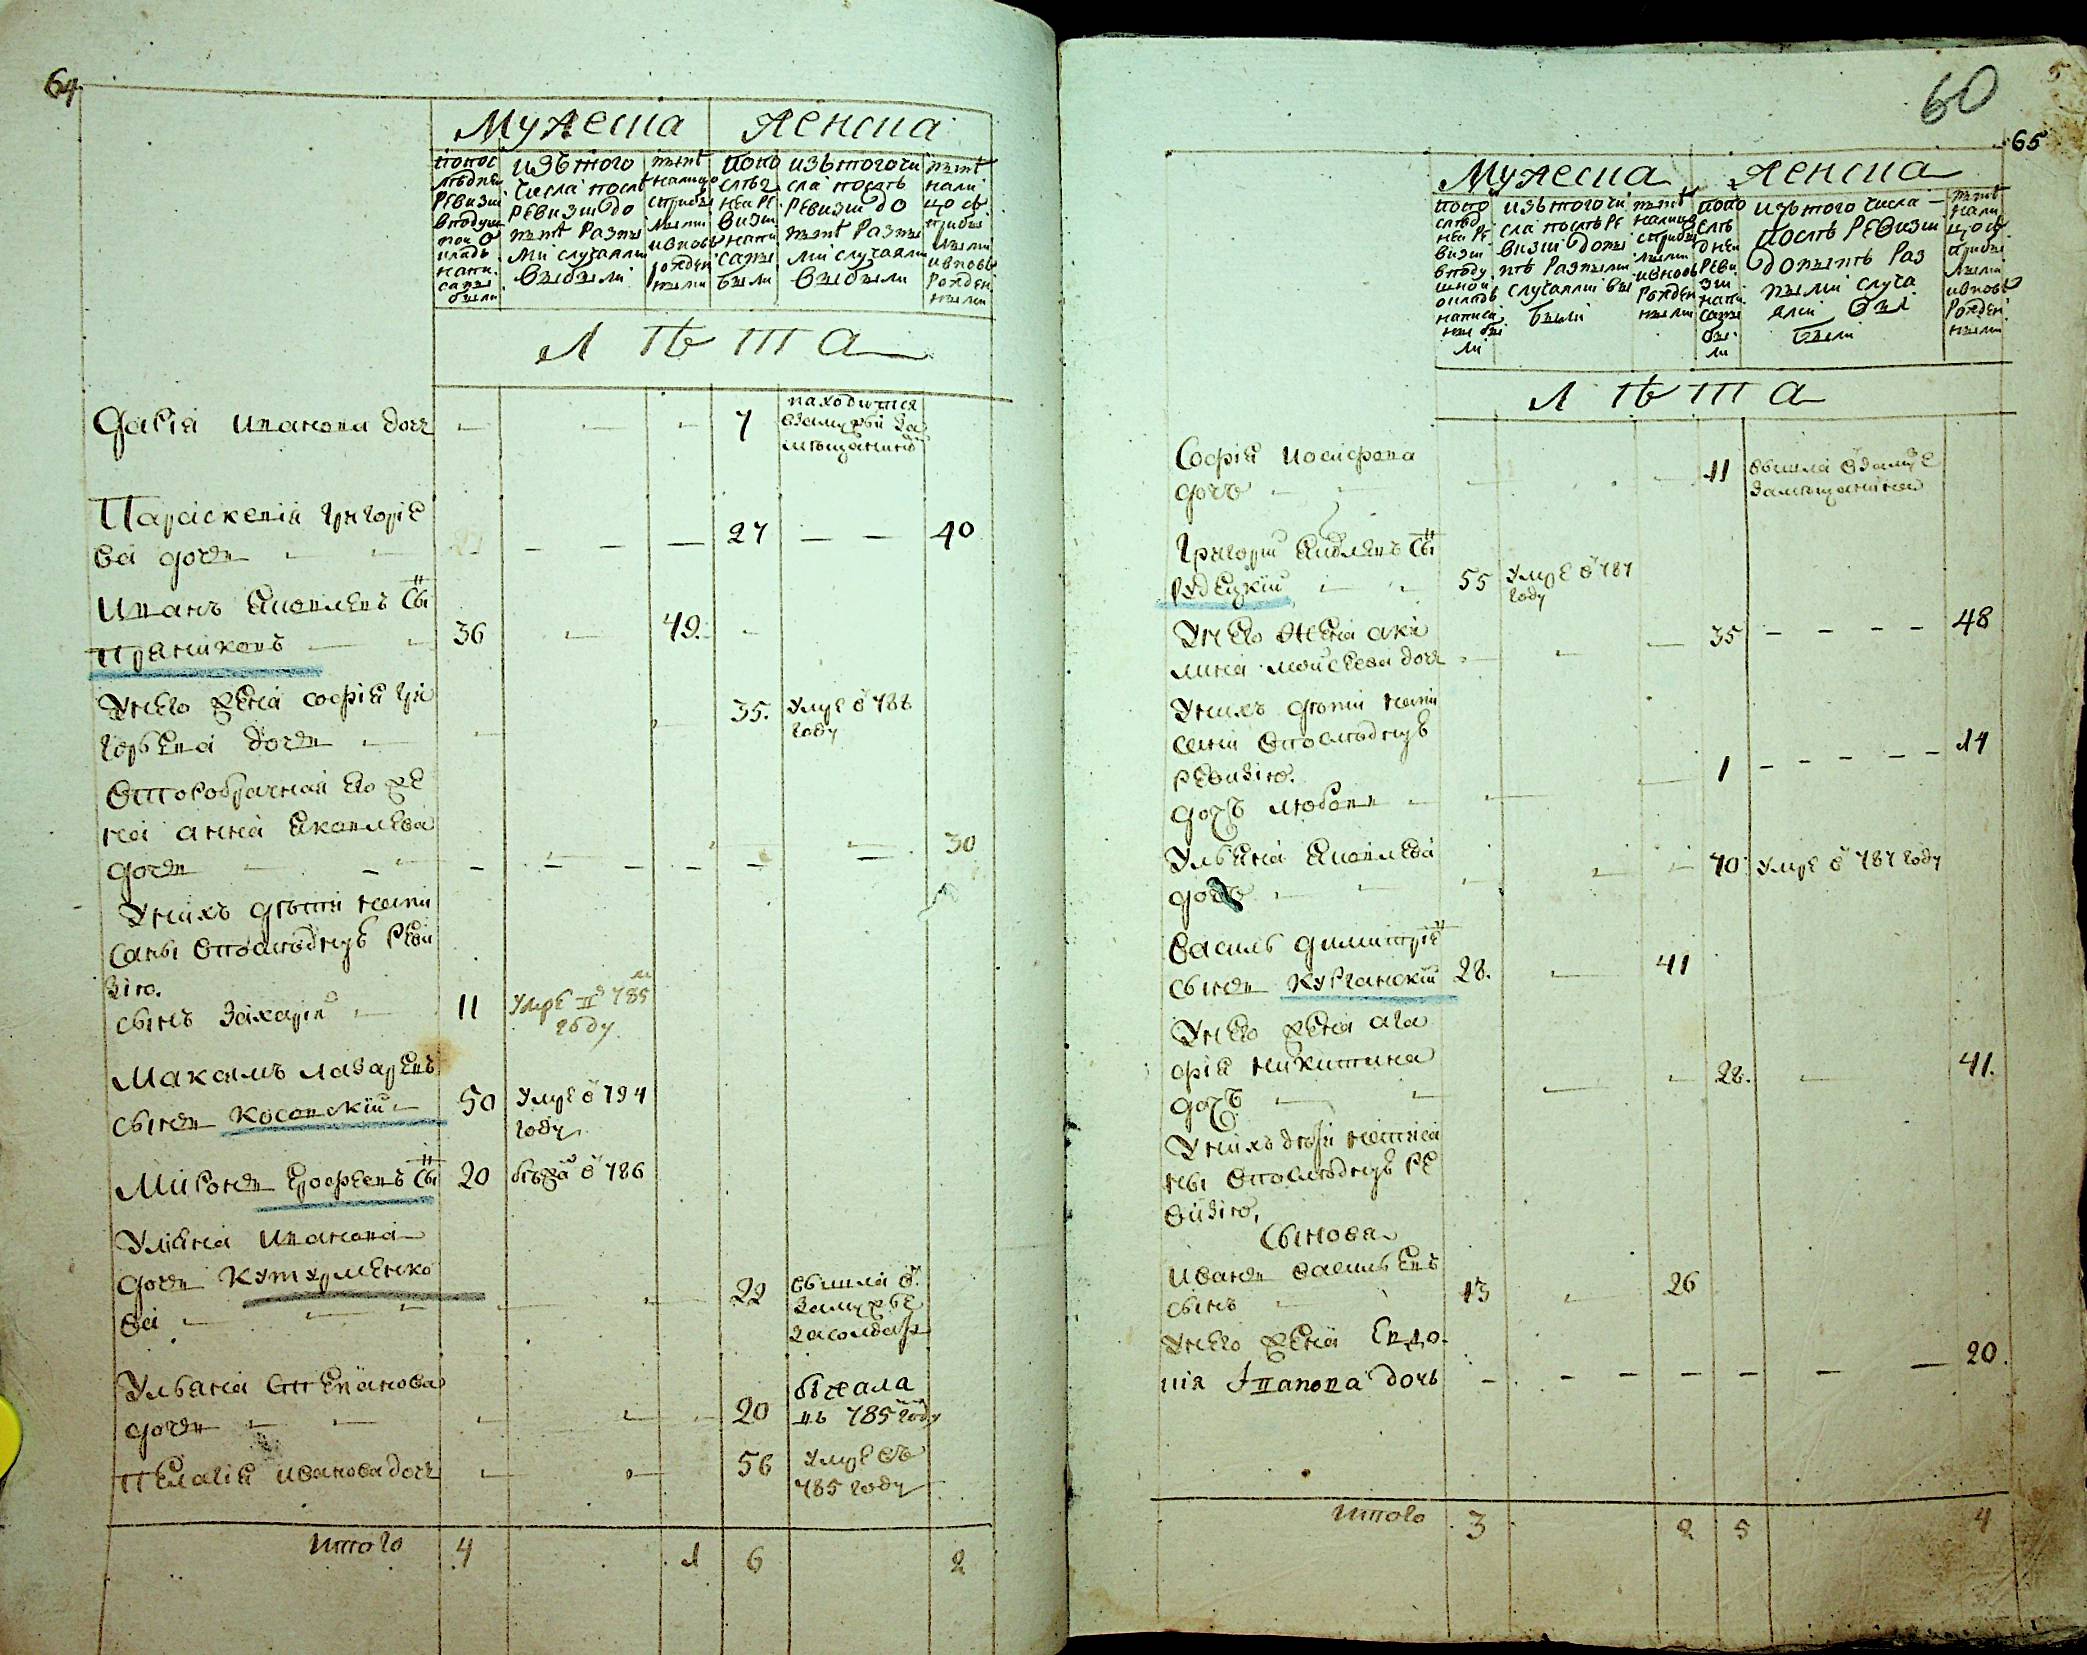 64
Мужеска женска
попос
лѣдней
ревизіи
въподуш
ной о
кладъ
напи
саны
были
изъ того
числа послѣ
ревизіи до
нынѣ разны
ми случаями
выбыли
нынѣ
налицо
съ прибы
лыми
и вновь
рожден
ными
попо
слѣд
ней ре
визіи
напи
саны
были
изъ того чи
сла послѣ
ревизіи до
нынѣ разны
ми случаями
выбыли
нынѣ
нали
цо съ
прибы
лыми
и вновь
рожден
ными
лѣта
Дарія Иванова дочь 7 находится
взамужъи за
мѣщаниномъ
Параскевія Григоріе
ва дочь 27 40
Иванъ Яковлевъ сынъ
Пряниковъ 36 49.
У него жена Софія Гри
горьева дочь 35. умре в 788
году
Второбрачная его же
на Анна Яковлева
дочь 30
У нихъ дѣти напи
саны впослѣднюю реви
зію.
сынъ Захарій 11 умре въ 785м
году
Максимъ Лазаревъ
сынъ Косовский 50 умре в 794
году
Миронъ Ерофеевъ сынъ 20 бежа в 786
Уляна Иванова
дочь Кутурменко
ва 22 вышла в
замужъе
за солдата
Ульяна Степанова
дочь 20 бежала
въ 785 году
Пелагія Иванова дочь 56 умре въ
785 году
итого 4 1 6 2
60
5
65
Мужеска женска
попо
слѣд
ней ре
визіи
вподу
шной
окладъ
написа
ны бы
ли
изъ того чи
сла послѣ ре
визіи доны
нѣ разными
случаями вы
были
нынѣ
налицо
съ прибы
лыми
и вновь
рожден
ными
попо
слѣ
дней
реви
зіи
напи
саны
бы
ли
изъ того числа
послѣ ревизіи
донынѣ раз
ными случа
ями вы
были
нынѣ
нали
цо съ
прибы
лыми
и вновь
рожден
ными
лѣта
Софія Иосифова
дочь 11 вышла взамуже
за мещанина
Григорій Яковлевъ сынъ
Рудецкій 55 умре в 787
году
У него жена Аки
лина Моисеева дочь 35 48
У нихъ дети напи
сании впослѣднюю
ревизію.
дочь Любовь 1 14
Ульяна Яковлева
дочь 70 умре в 787 году
Василь Димитріе
сынъ Курганский 28. 41
У него жена Ага
фія Никитина
дочь 28. 41.
У нихъ дѣти написа
ны впослѣднюю ре
визію,
Сынова
Иванъ Васильевъ
сынъ 13 26
У него жена Евдо
кія Іванова дочь 20.
итого 3 2 5 4